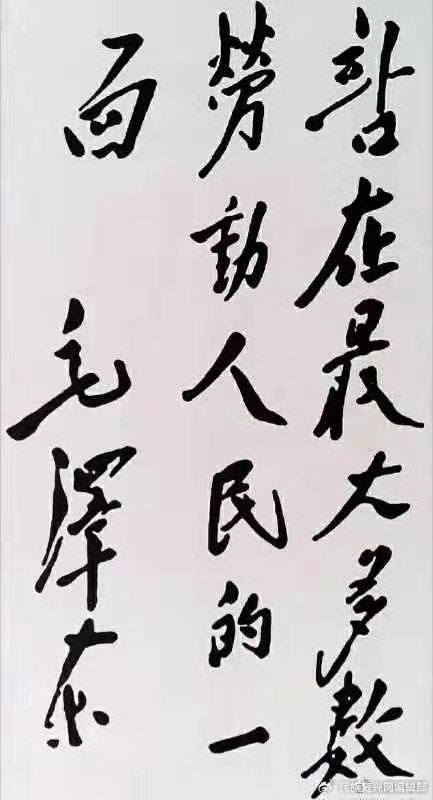 站在最大多数
劳動人民的一
面
毛澤东
民族复兴网编辑部